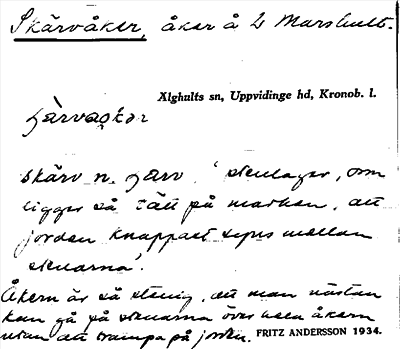 Skärvåker, åker å L Marshult.
Älghults sn, Uppvidinge hd, Kronob. l.
skärv n. 'stenlager, som
ligger så tätt på marken, att
jorden knappast synes mellan
stenarna'.
Åkern är så stenig, att man nästan
kan gå på stenarna över hela åkern
utan att trampa på jorden. FRITZ ANDERSSON 1934.